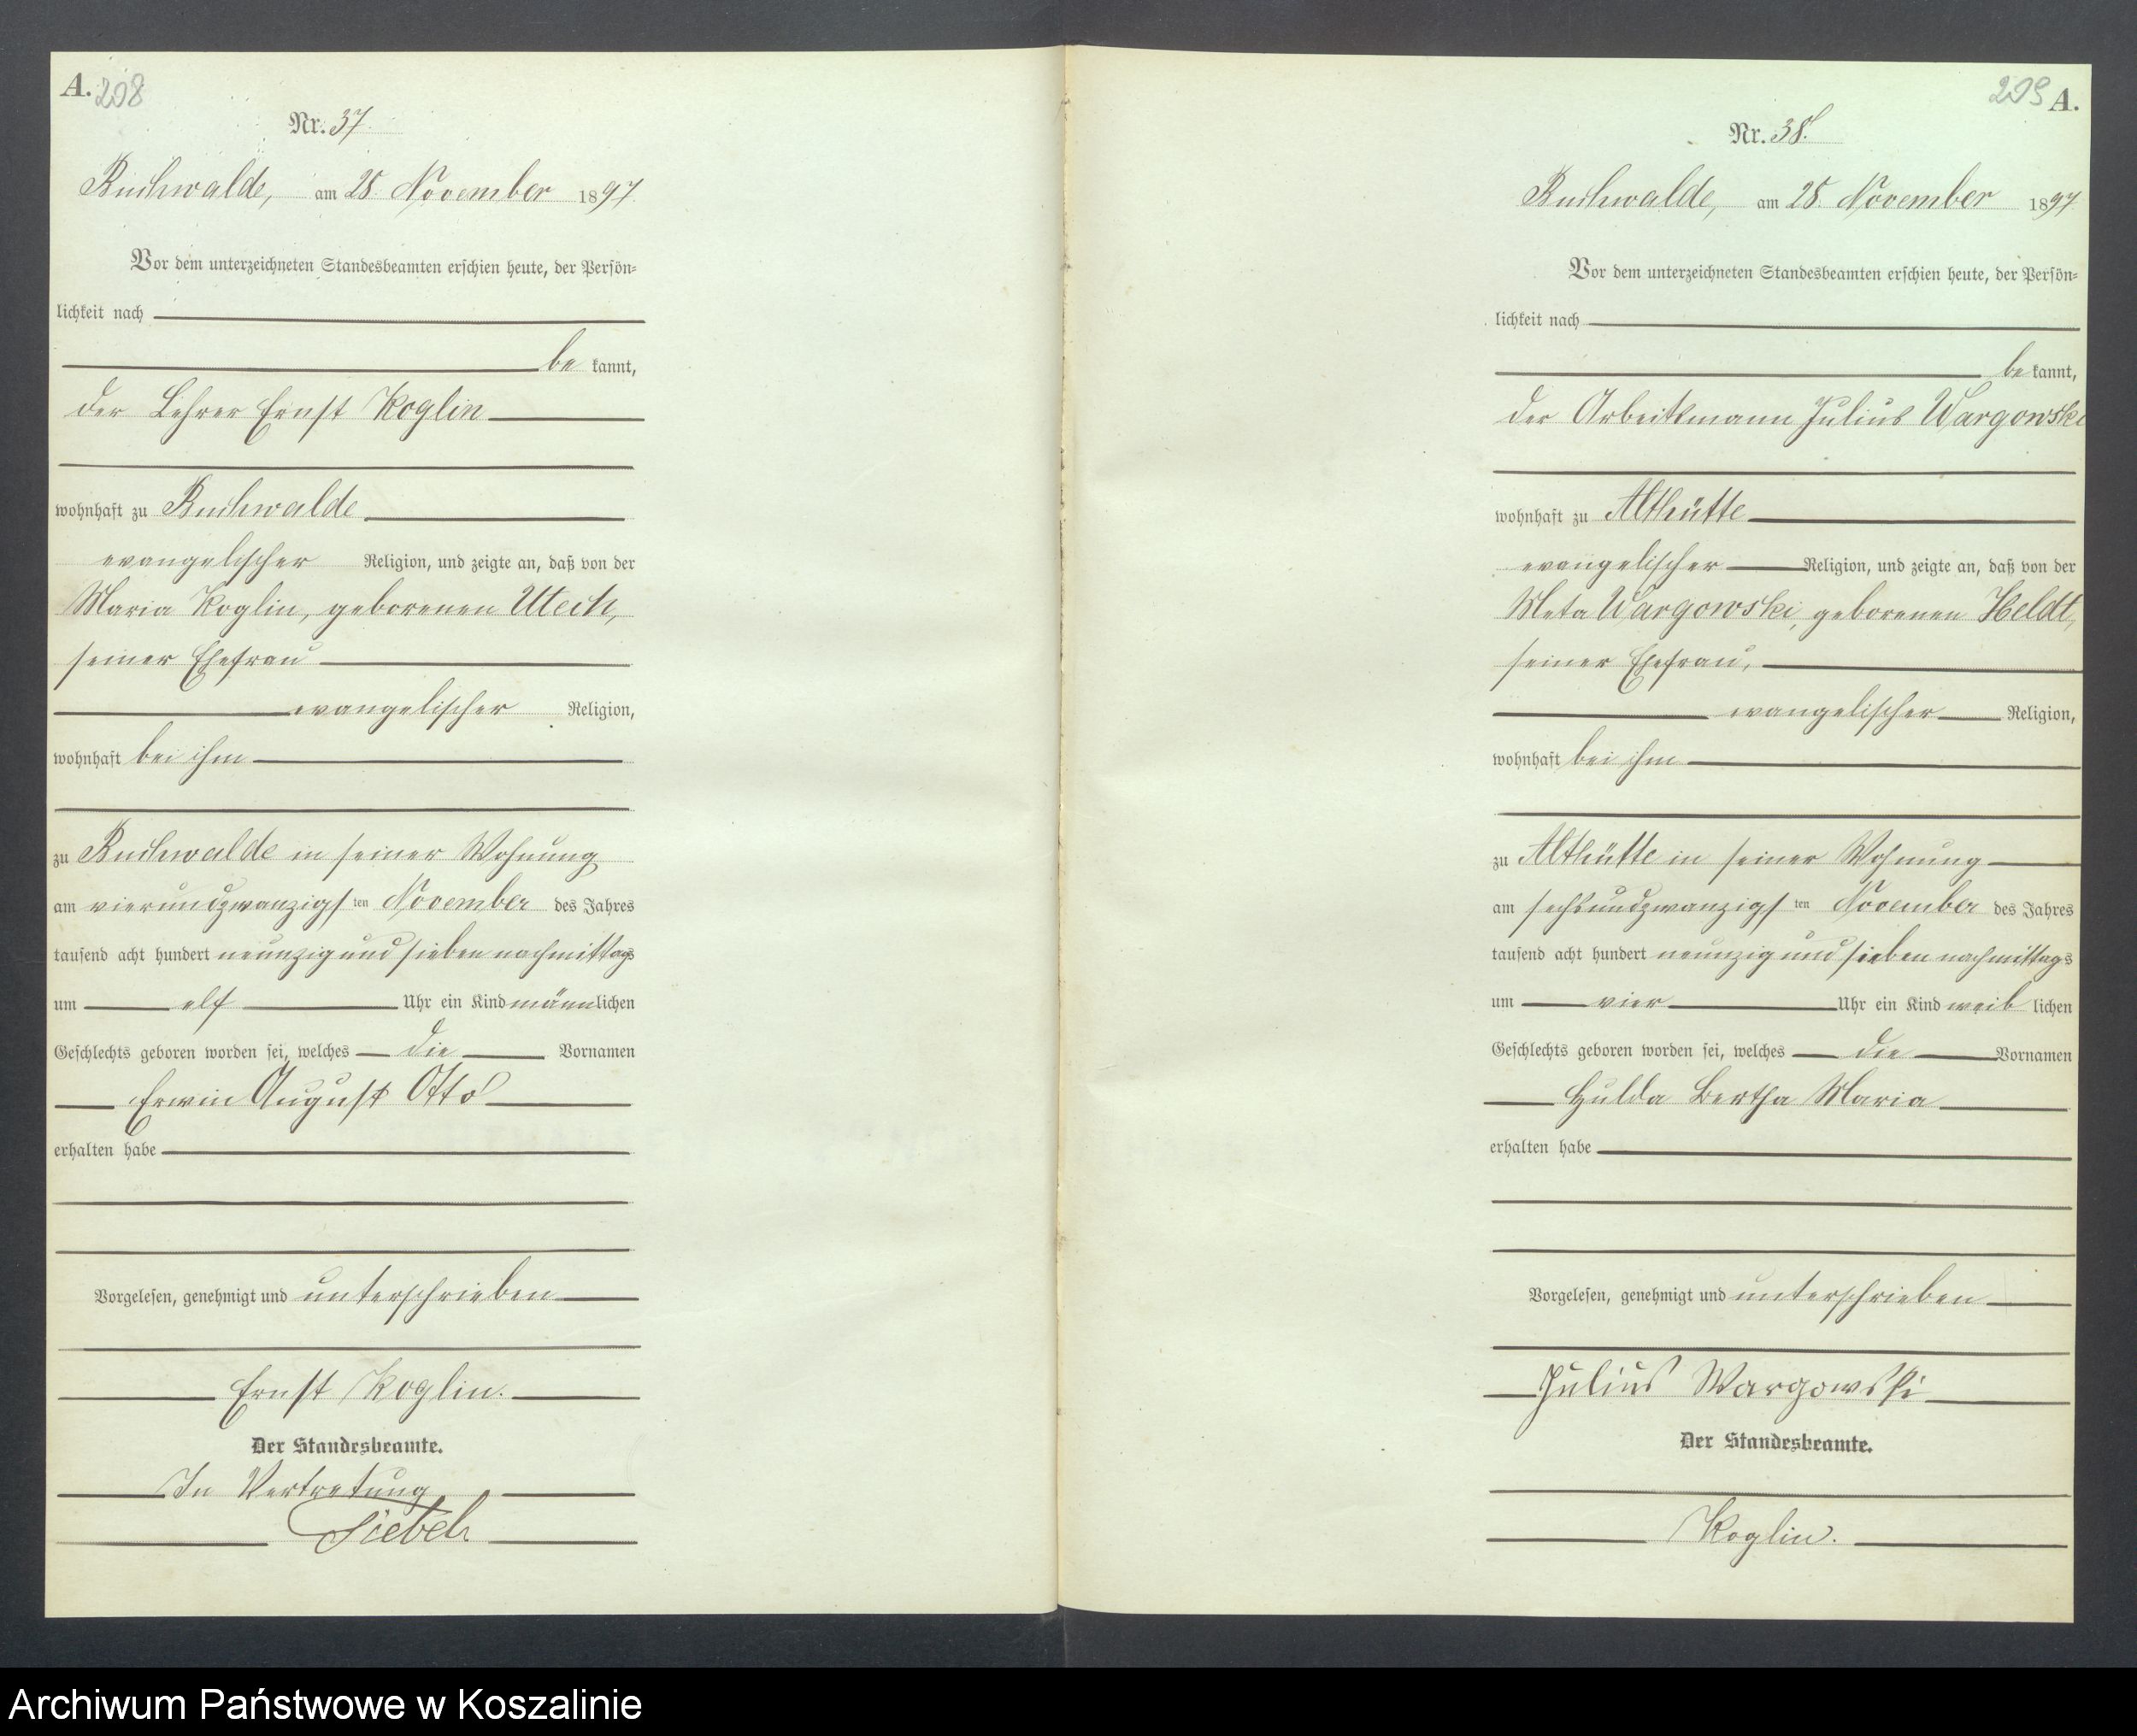 A. 208
Nr. 37.
Buchwalde, am 28. November 1897.
Vor dem unterzeichneten Standesbeamten erschien heute, der Persön-
lichkeit nach
be kannt,
der Lehrer Ernst Koglin
wohnhaft zu Buchwalde
evangelischer Religion, und zeigte an, daß von der
Maria Koglin, geborenen Utech,
seiner Ehefrau
evangelischer Religion,
wohnhaft bei ihm
zu Buchwalde in seiner Wohnung
am vierundzwanzigsten November des Jahres
tausend acht hundert neunzig und sieben nachmittags
um elf Uhr ein Kind männlichen
Geschlechts geboren worden sei, welches die Vornamen
Erwin August Otto
erhalten habe
Vorgelesen, genehmigt und unterschrieben
Ernst Koglin.
Der Standesbeamte.
In Vertretung
209 A.
Nr. 38.
Buchwalde, am 28. November 1897.
Vor dem unterzeichneten Standesbeamten erschien heute, der Persön-
lichkeit nach
be kannt,
der Arbeitsmann Julius Wargowski
wohnhaft zu Althütte
evangelischer Religion, und zeigte an, daß von der
Meta Wargowski, geborenen Heldt,
seiner Ehefrau,
evangelischer Religion,
wohnhaft bei ihm
zu Althütte in seiner Wohnung
am sechsundzwanzigsten November des Jahres
tausend acht hundert neunzig und sieben nachmittags
um vier Uhr ein Kind weib lichen
Geschlechts geboren worden sei, welches die Vornamen
Hulda Bertha Maria
erhalten habe
Vorgelesen, genehmigt und unterschrieben
Julius Wargowski
Der Standesbeamte.
Koglin.
Archiwum Państwowe w Koszalinie